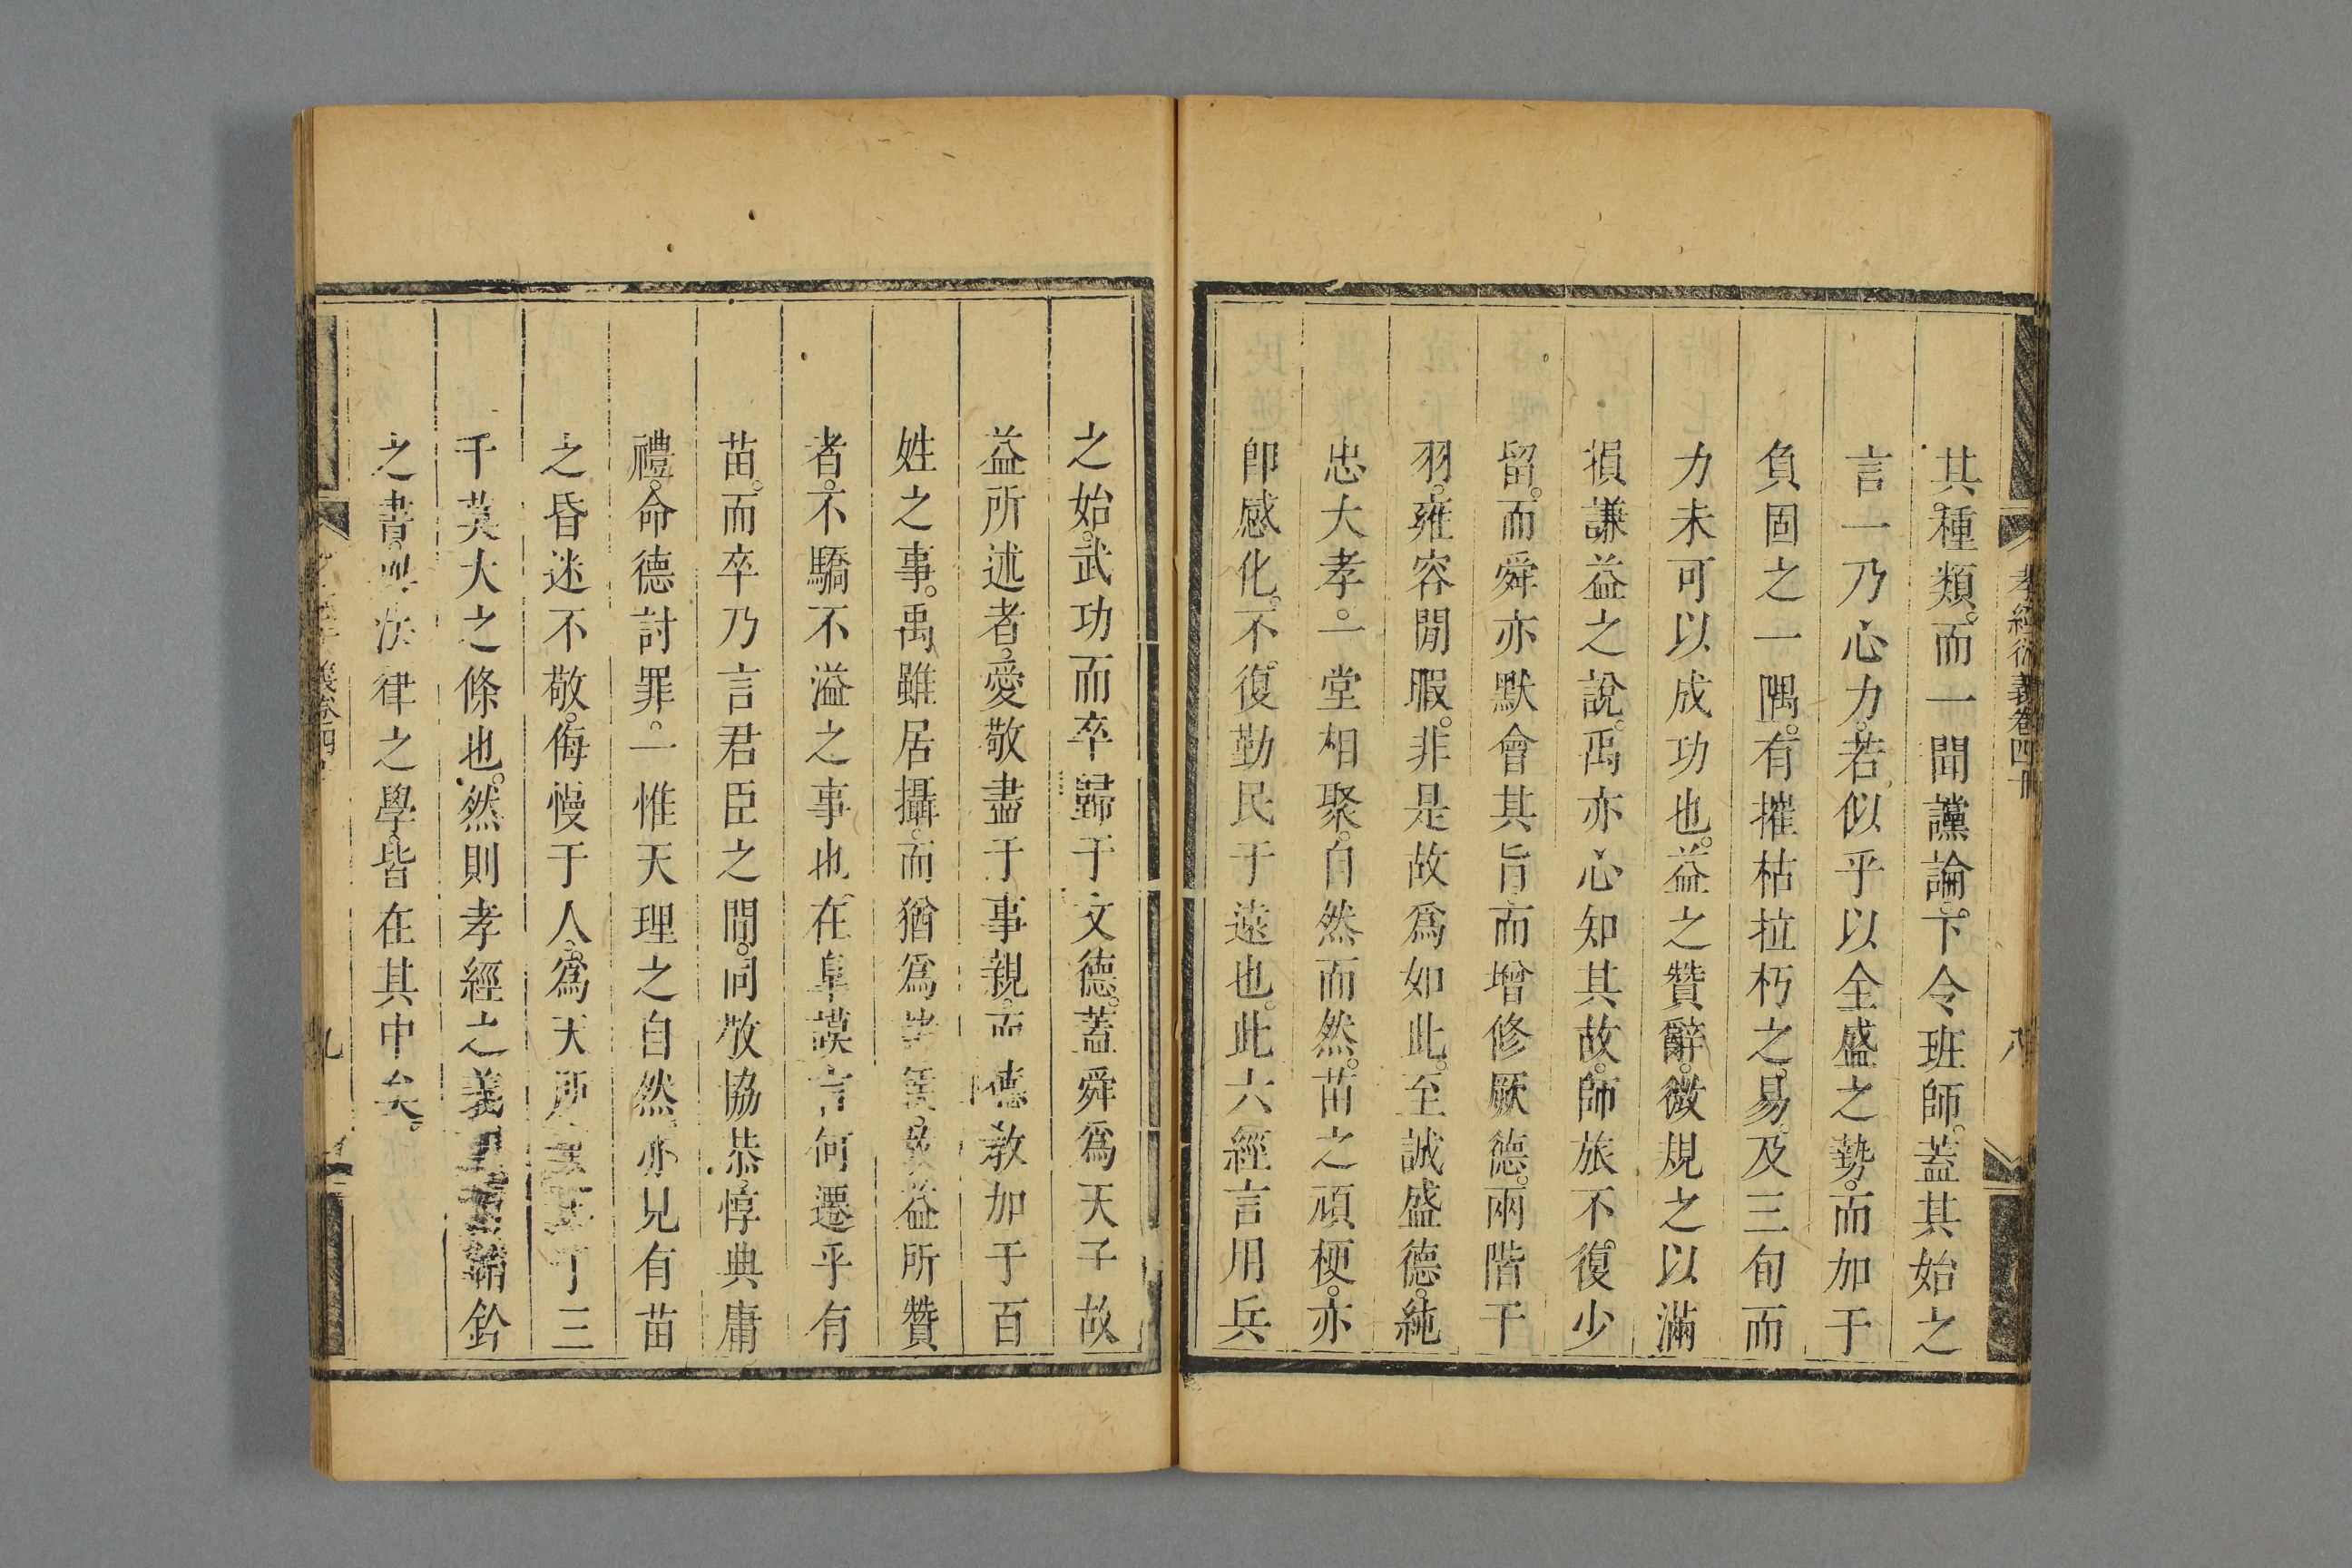 孝經衍義卷四十
八
其種類。而一聞讜論。下令班師。蓋其始之
言一乃心力。若似乎以全盛之勢。而加于
負固之一隅。有摧枯拉朽之易。及三旬而
力未可以成功也。益之贊辭。微規之以滿
損謙益之說。禹亦心知其故。師旅不復少
留。而舜亦默會其旨而增修厥德。兩階干
羽。雍容閒暇。非是故爲如此。至誠盛德。純
忠大孝。一堂相聚。自然而然。苗之頑梗。亦
卽感化。不復勤民于遠也。此六經言用兵
之始。武功而卒歸于文德。蓋舜爲天子故
益所述者。愛敬盡于事親。而德教加于百
姓之事。禹雖居攝。而猶爲 益所贊
者。不驕不溢之事也。在皐謨言何遷乎有
苗。而卒乃言君臣之間。同敬協恭。惇典庸
禮。命德討罪。一惟天理之自然。亦見有苗
之昏迷不敬。侮慢于人。爲天 三
千莫大之條也。然則孝經之義 鈐
之書。與法律之學。皆在其中矣。
義卷四十
九